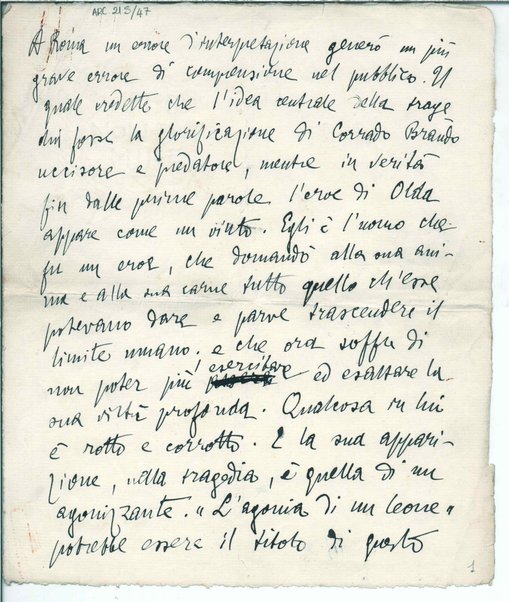 ARC 21 S/47
A Roma un errore d'interpretazione generò un più
grave errore di comprensione nel pubblico. Il
quale credette che l'idea centrale della trage
dia fosse la glorificazione di Corrado Brando
uccisore e predatore, mentre in verità
fin dalle prime parole l'eroe di Olda
appare come un vinto. Egli è l'uomo che
fu un eroe, che domandò alla sua ani-
ma e alla sua carne tutto quello ch'esse
potevano dare e parve trascendere il
limite umano. e che ora soffre di
non poter più esercitare ed esaltare la
sua virtù profonda. Qualcosa in lui
è rotto e corrotto. E la sua appari-
zione, nella tragedia, è quella di un
agonizzante. "L'agonia di un leone"
potrebbe essere il titolo di questo
1